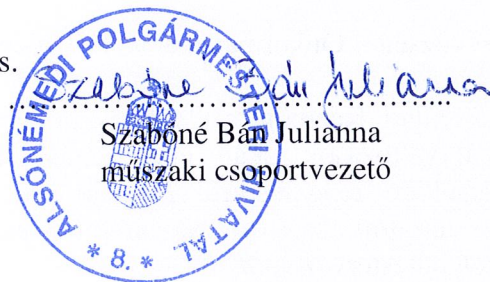 s.
Szabóné Bán Julianna
Szabóné Bán Julianna
műszaki csoportvezető
ALSÓNÉMEDI POLGÁRMESTERI HIVATAL
* 8. *